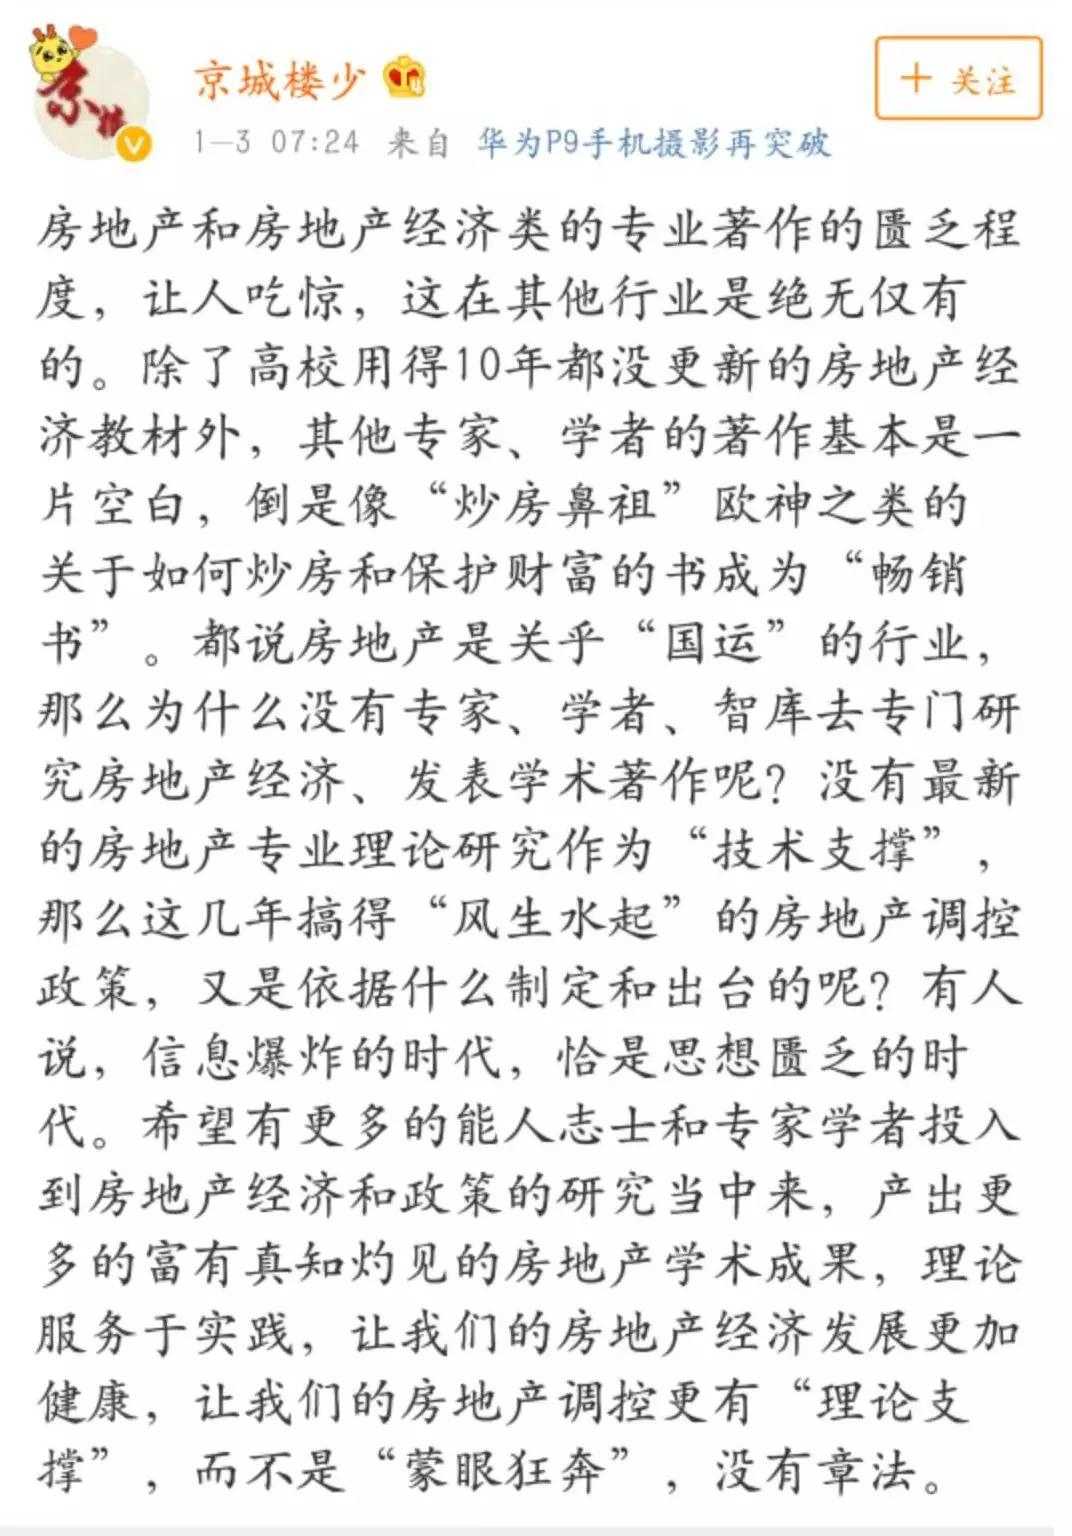 京城楼少
+ 关注
1-3 07:24 来自 华为P9手机摄影再突破
房地产和房地产经济类的专业著作的匮乏程
度，让人吃惊，这在其他行业是绝无仅有
的。除了高校用得10年都没更新的房地产经
济教材外，其他专家、学者的著作基本是一
片空白，倒是像“炒房鼻祖”欧神之类的
关于如何炒房和保护财富的书成为“畅销
书”。都说房地产是关乎“国运”的行业，
那么为什么没有专家、学者、智库去专门研
究房地产经济、发表学术著作呢？没有最新
的房地产专业理论研究作为“技术支撑”，
那么这几年搞得“风生水起”的房地产调控
政策，又是依据什么制定和出台的呢？有人
说，信息爆炸的时代，恰是思想匮乏的时
代。希望有更多的能人志士和专家学者投入
到房地产经济和政策的研究当中来，产出更
多的富有真知灼见的房地产学术成果，理论
服务于实践，让我们的房地产经济发展更加
健康，让我们的房地产调控更有“理论支
撑”，而不是“蒙眼狂奔”，没有章法。